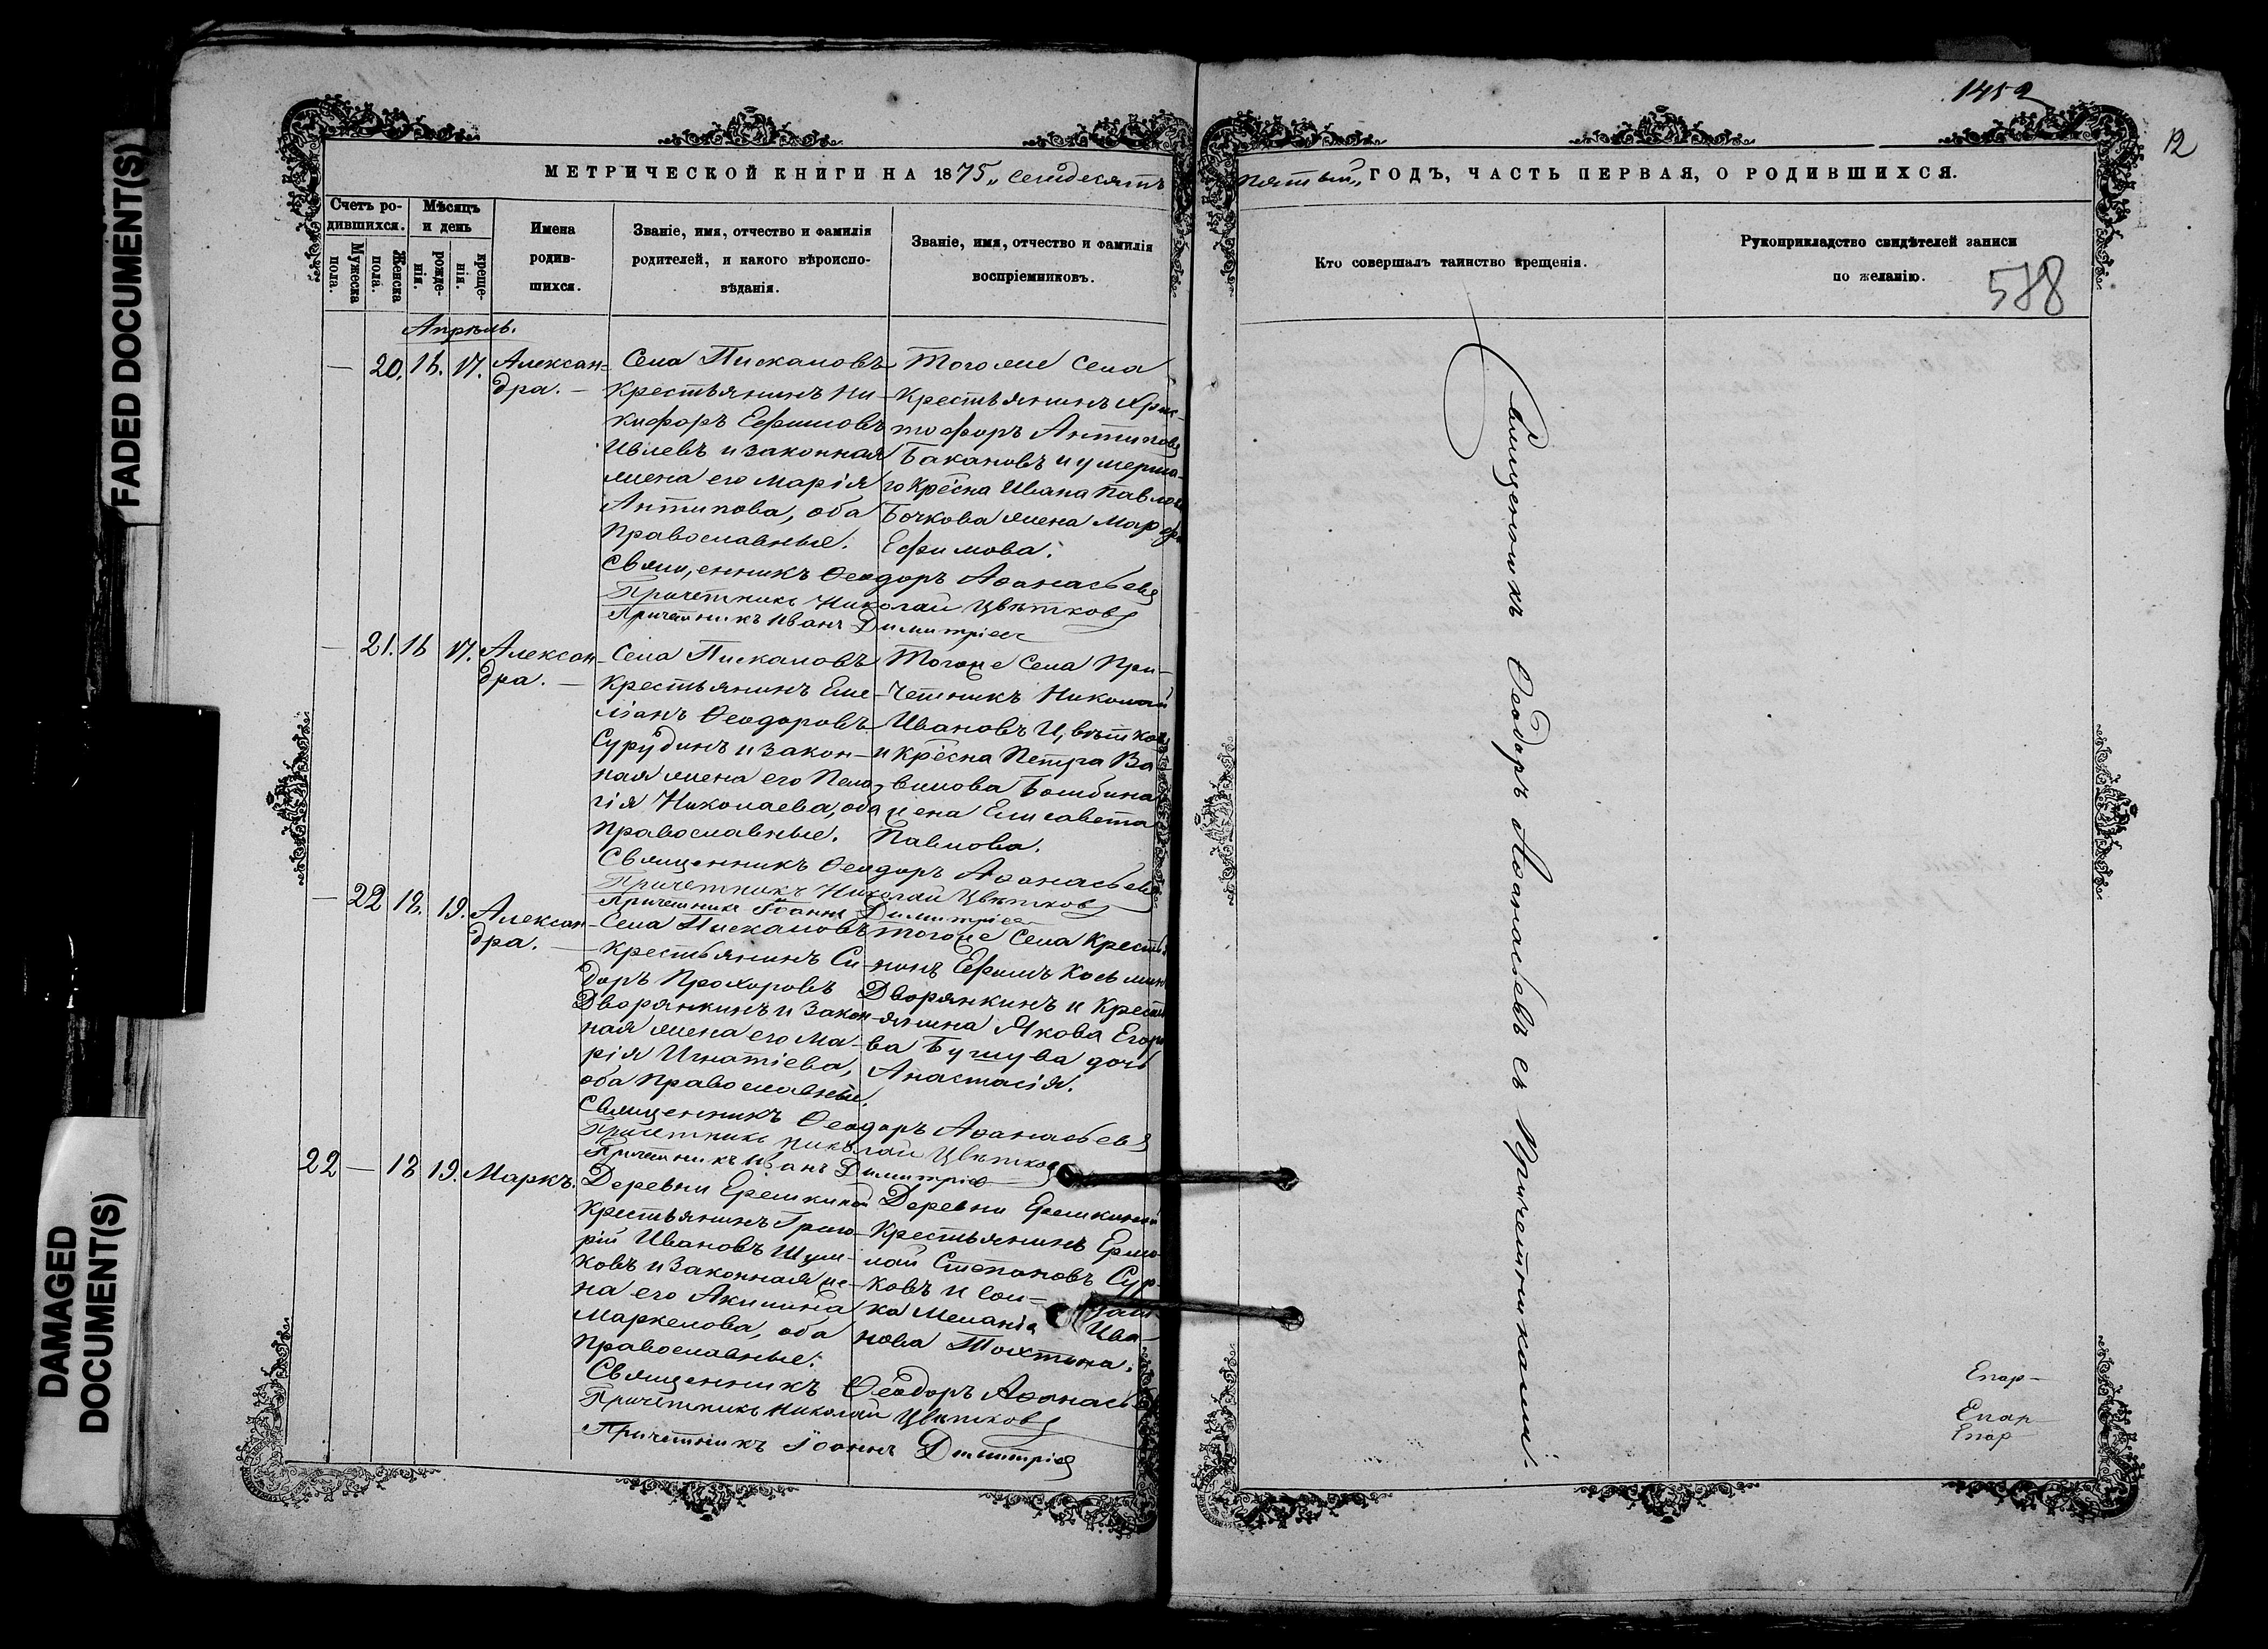 1452
12
МЕТРИЧЕСКОЙ КНИГИ НА 1875 „семьдесятъ
пятый„ ГОДЪ, ЧАСТЬ ПЕРВАЯ, О РОДИВШИХСЯ.
Счетъ ро-
дившихся.
Мужеска
пола.
Женска
пола.
Мѣсяцъ
и день
рожде-
нія.
креще-
нія.
Имена
родив-
шихся.
Званіе, имя, отчество и фамилія
родителей, и какого вѣроиспо-
вѣданія.
Званіе, имя, отчество и фамилія
воспріемниковъ.
Кто совершалъ таинство крещенія.
Рукоприкладство свидѣтелей записи
по желанію.
578
Апрѣль.
— 20. 16. 17. Алексан-
дра. —
Села Пискаловъ
крестьянинъ Ни-
кифоръ Ефимовъ
Ивлевъ и законная
жена его Марія
Антипова, оба
православные.
Тогоже села
крестьянинъ Хрис-
тофоръ Антиповъ
Бакановъ и умерша-
го крес̃на Ивана Павлова
Бочкова жена Марфа
Ефимова.
Священникъ Ѳеодоръ Аѳанасьевъ
Причетникъ Николай Цвѣтковъ
Причетникъ Иванъ Димитріев
— 21. 16 17. Алексан-
дра. —
Села Пискаловъ
крестьянинъ Еме-
ліанъ Ѳеодоровъ
Сурудинъ и закон-
ная жена его Пела-
гія Николаева, оба
православные.
Тогоже села При-
четникъ Николай
Ивановъ Цвѣтковъ
и крес̃на Петра Ва-
вилова Бомбина
жена Елисавета
Павлова.
Священникъ Ѳеодоръ Аѳанасьевъ
Причетникъ Николай Цвѣтковъ
Причетникъ Іоаннъ Димитріев
— 22 18. 19. Алексан-
дра. —
Села Пискаловъ
крестьянинъ Си-
доръ Прохоровъ
Дворянкинъ и закон-
ная жена его Ма-
рія Игнатіева,
оба православные.
Тогоже села кресть-
нинъ Ефимъ Косьмин
Дворянкинъ и кресть
янина Якова Егоро
ва Бушуева дочь
Анастасія.
Священникъ Ѳеодоръ Аѳанасьевъ
Причетникъ Николай Цвѣтковъ
Причетникъ Иванъ Димитріев
22 — 18 19. Маркъ.
Деревни Ерешкиной
крестьянинъ Григо-
рій Ивановъ Шум-
ковъ и законная же-
на его Акилина
Маркелова, оба
православные.
Деревни Ерешкиной
крестьянинъ Ермо-
лай Степановъ Сур-
ковъ и сол-
ка Меланія Ива-
нова Тюхтина.
Священникъ Ѳеодоръ Аѳанасьевъ
Причетникъ Николай Цвѣтковъ
Причетникъ Іоаннъ Димитріев
Священникъ Ѳеодоръ Аѳанасьевъ съ Причетниками.
Епар-
Епар
Епар